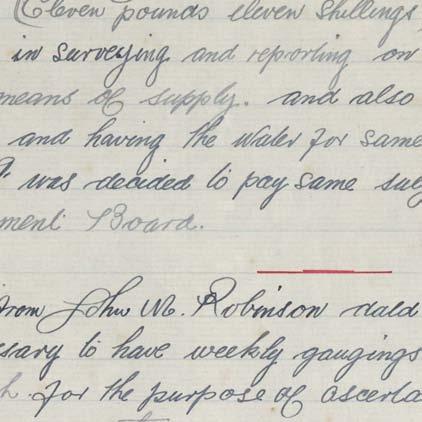 (Eleven pounds eleven shillings
in surveying and reporting on
means of supply. and also
and having the water for same
was decided to pay same sub
ment Board.
from John M. Robinson dated
ssary to have weekly gaugings
h. for the purpose of ascerta